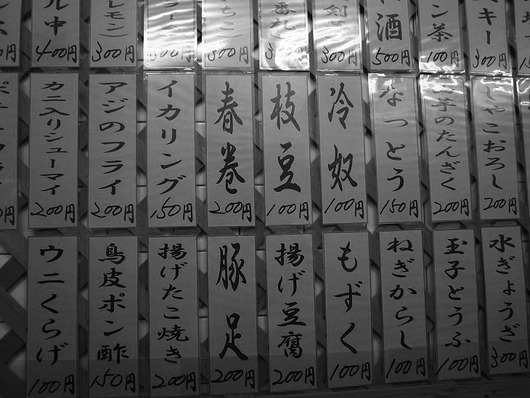 キー 300円
ン茶 100円
酒 500円
レモン 300円
ル中 400円
しゃこおろし 200円
芋のたんざく 200円
なっとう 150円
冷奴 100円
枝豆 100円
春巻 200円
イカリング 150円
アジのフライ 200円
カニ入りシューマイ 200円
水ぎょうざ 300円
玉子とうふ 100円
ねぎからし 100円
もずく 100円
揚げ豆腐 200円
豚足 200円
揚げたこ焼き 200円
鳥皮ポン酢 150円
ウニくらげ 100円